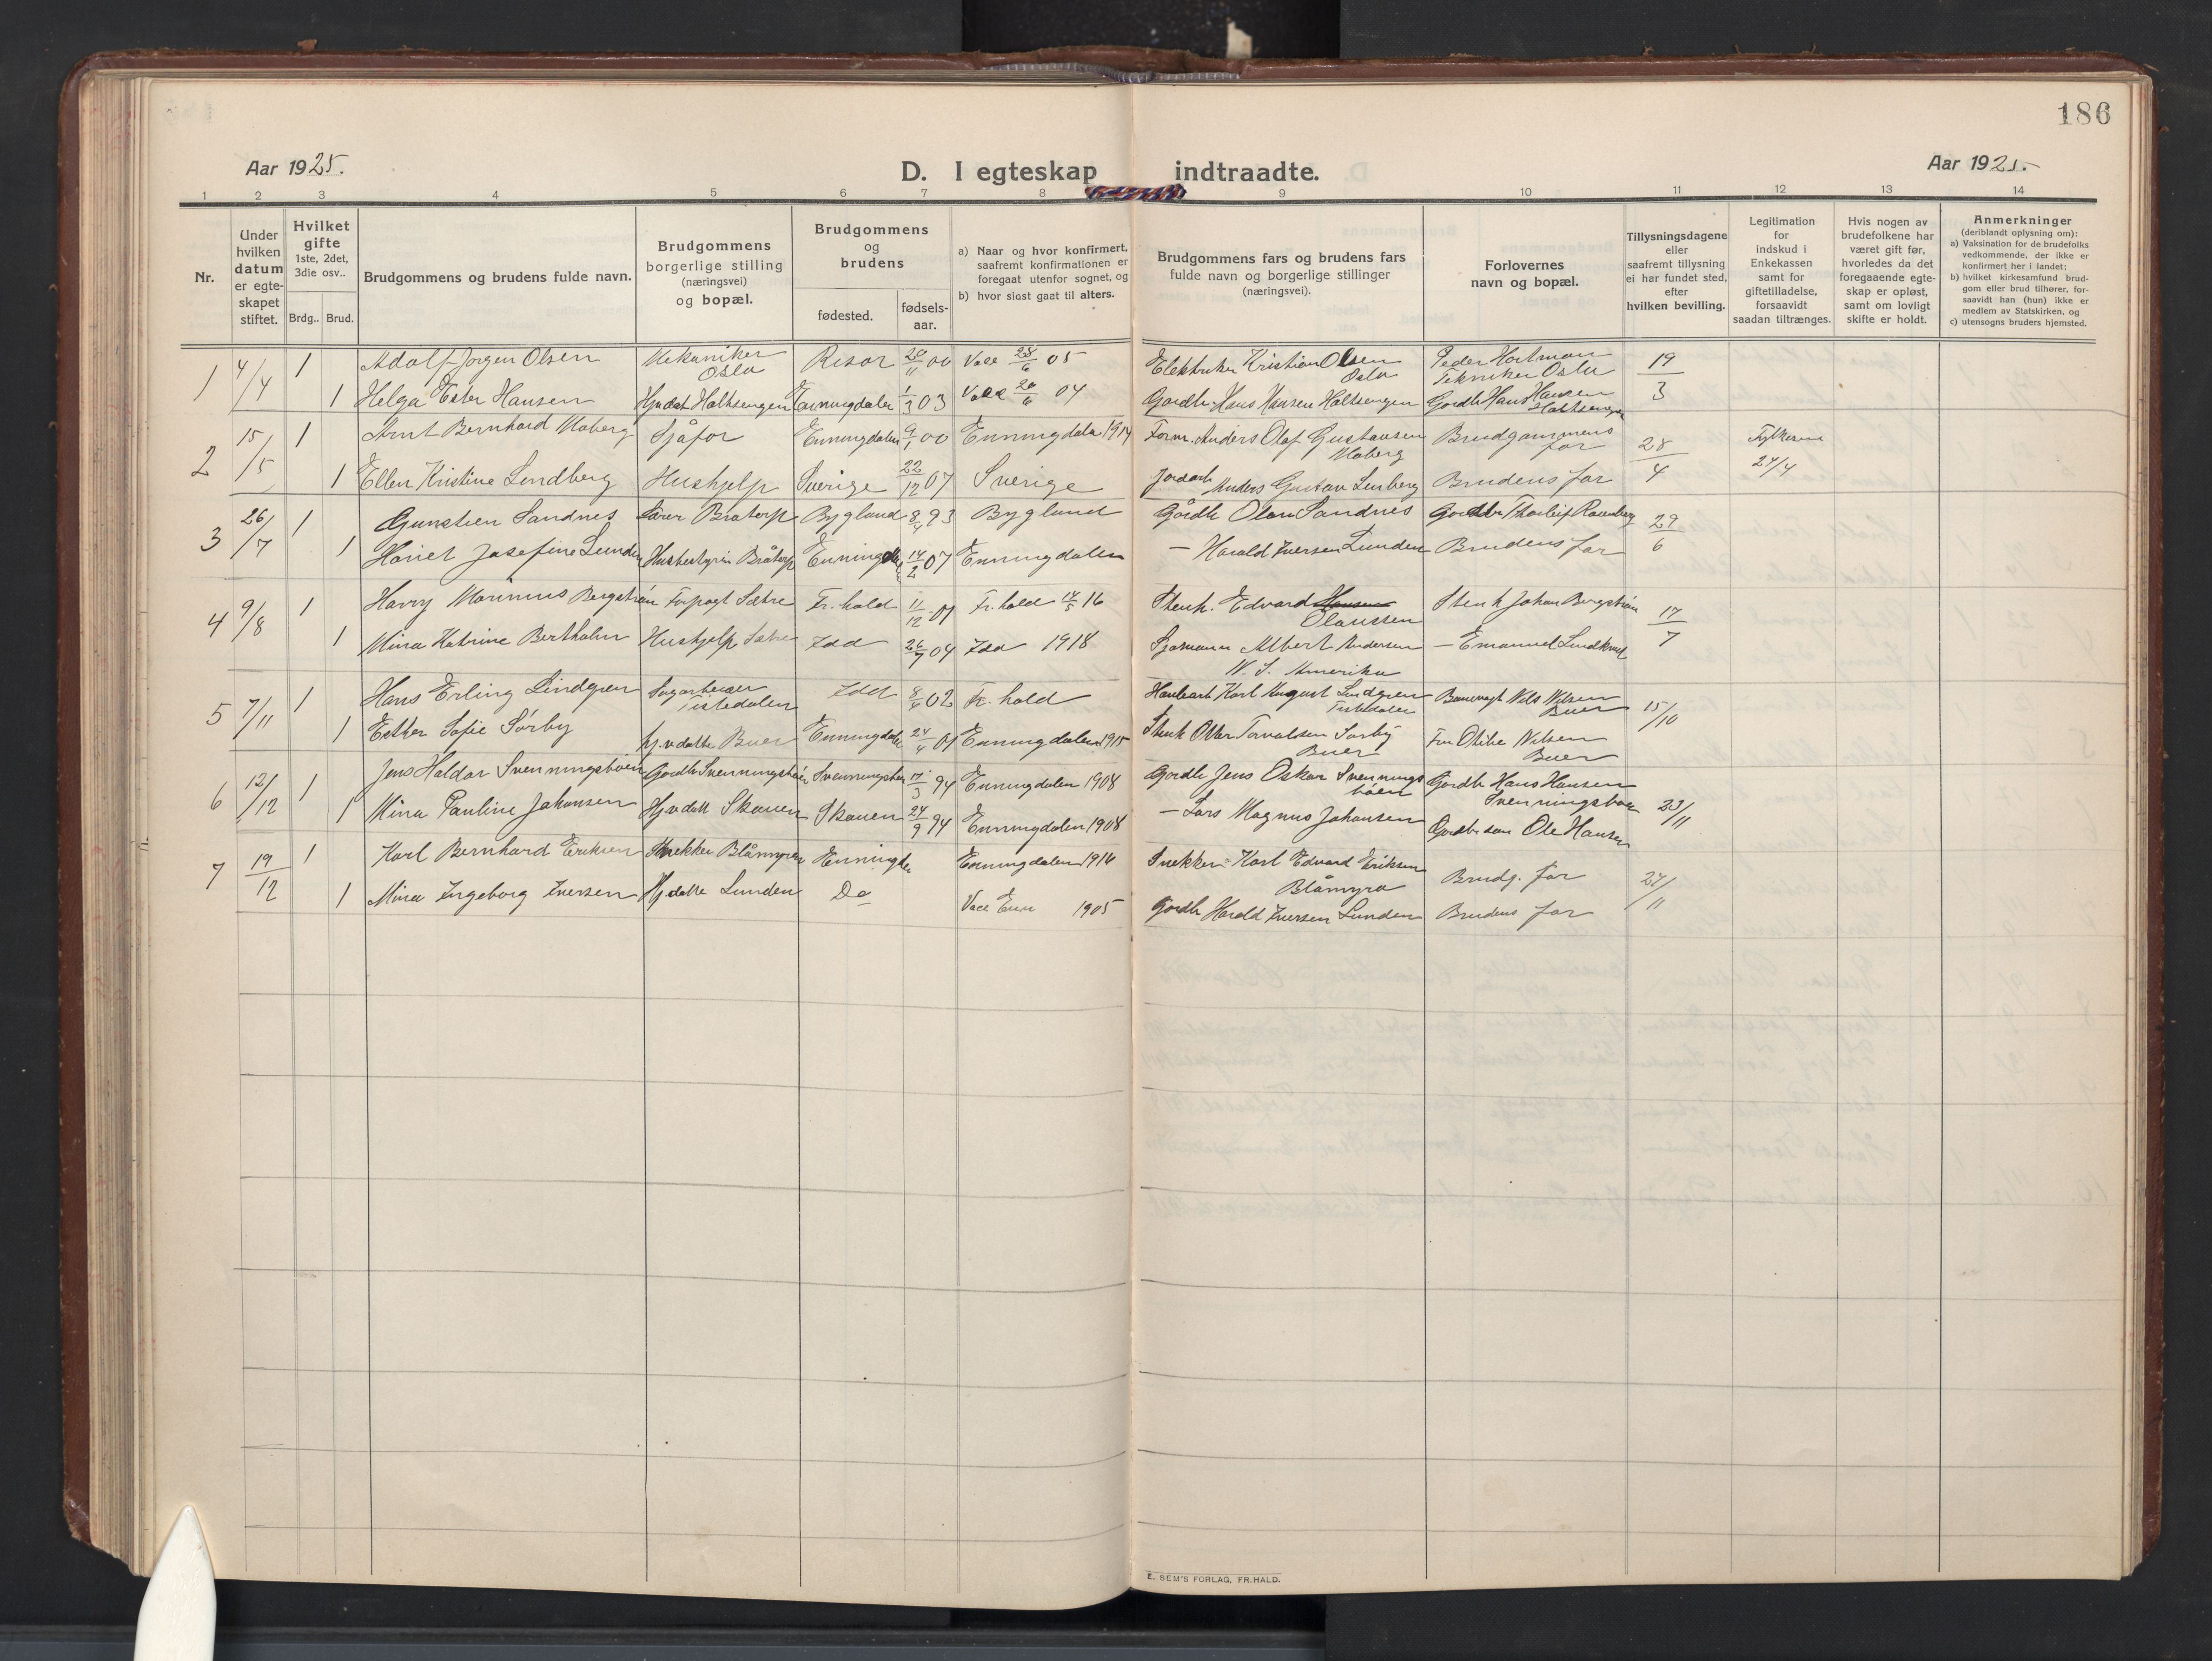 186
Aar 1925.
D. I egteskap indtraadte.
Aar 1925.
1 2 3 4 5 6 7 8 9 10 11 12 13 14
Nr.
Under hvilken datum er egte-skapet stiftet.
Hvilket gifte 1ste, 2det, 3die osv..
Brdg.. Brud.
Brudgommens og brudens fulde navn.
Brudgommens borgerlige stilling (næringsvei) og bopæl.
Brudgommens og brudens
fødested.
fødsels-aar.
a) Naar og hvor konfirmert, saafremt konfirmationen er foregaat utenfor sognet, og
b) hvor sidst gaat til alters.
Brudgommens fars og brudens fars fulde navn og borgerlige stillinger (næringsvei).
Forlovernes navn og bopæl.
Tillysningsdagene eller saafremt tillysning ei har fundet sted, efter hvilken bevilling.
Legitimation for indskud i Enkekassen samt for giftetilladelse, forsaavidt saadan tiltrænges.
Hvis nogen av brudefolkene har været gift før, hvorledes da det foregaaende egte-skap er opløst, samt om lovligt skifte er holdt.
Anmerkninger (deriblandt oplysning om):
a) Vaksination for de brudefolks vedkommende, der ikke er konfirmert her i landet;
b) hvilket kirkesamfund brud-gom eller brud tilhører, for-saavidt han (hun) ikke er medlem av Statskirken, og
c) utensogns bruders hjemsted.
1 4/4 1 Adolf Jørgen Olsen Mekaniker Oslo Risør 20/11 00 28/6 05 Elektriker Kristian Olsen Oslo Peder Hartman Tekniker Oslo 19/3
1 Helga Ester Hansen Hjvdat Holtsengen 1/3 03 20/6 04 Gardbr Hans Hansen Holtsengen Gardbr Hans Hansen Holtsengen
2 15/5 1 Arnt Bernhard Moberg Sjåfør Enningdalen 9/1 00 Enningdalen 1914 Form. Anders Olaf Gustavsen Moberg Brudgommens far 28/4 27/4
1 Ellen Kristine Lindberg Hushjelp Sverige 22/12 07 Sverige Jordarb Anders Gustav Brudens far
3 26/7 1 Gunstein Sandnes Lærer Bråtorp Bygland 8/4 93 Bygland Gårdbr Olav Sandnes Gardbr 29/6
1 Hariet Josefine Lunden Husbestyrin Bråtorp Enningdal 14/2 07 Enningdalen — Harald Iversen Lunden Brudens far
4 9/8 1 Harry Marinius Bergstrøm Forpagt Sætre Fr.hald 11/12 01 Fr.hald 14/5 16 Stenh. Edvard Hansen Olaussen Stenh Johan Bergstrøm 17/7
1 Mina Katrine Bertholm Hushjelp Sætre Idd 26/7 04 Idd 1918 Sjømann Albert Andersen — Emanuel
N. S. Amerika
5 7/11 1 Hans Erling Lindgren Tistedalen Idd 02 Fr.hald Karl August Lindgren Tistedalen Banevogt Nils Nilsen Buer 15/10
1 Esther Sofie Sørby hj.v datte Buer Enningdalen 24/4 01 Enningdalen 1915 Stenh Torvalsen Sørby Buer Fru Otilie Nilsen Buer
6 12/12 1 Jens Haldor Svenningsbøen Gardbr Svenningsbøen Svenningsbøen 17/3 94 Enningdalen 1908 Gardbr Jens Oskar Svenningsbøen Gardbr Hans Hansen Svenningsbøen 23/11
1 Mina Pauline Johansen Hjvdatt Skauen Skauen 24/9 94 Enningdalen 1908 — Lars Magnus Johansen Gardbr søn Ole Hansen
7 19/12 1 Karl Bernhard Eriksen Snekker Blåmyra Enningda Enningdalen 1914 Snekker Karl Edvard Eriksen Blåmyra Brudg. far 27/11
1 Mina Ingeborg Iversen Hjdatte Lunden Do 1905 Gardbr Harald Iversen Lunden Brudens far
E. SEM'S FORLAG, FR.HALD.